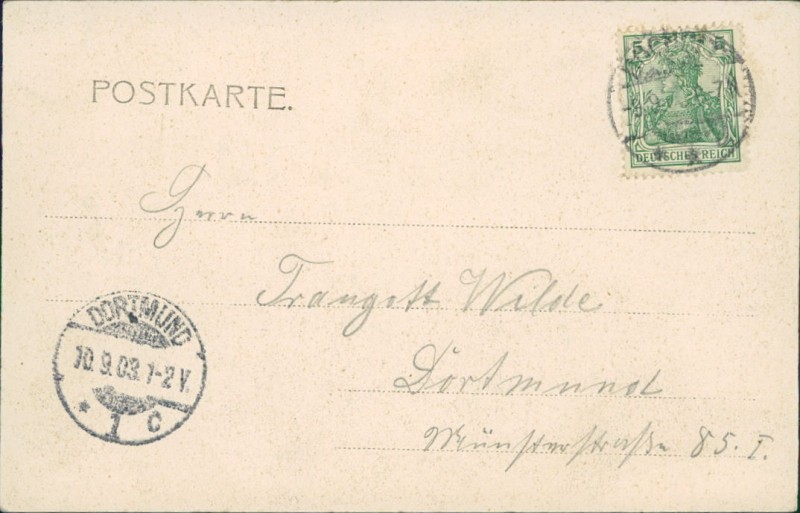 POSTKARTE.
5 5
DEUTSCHES REICH
Herrn
Traugott Wilde
Dortmund
Münsterstraße 85. I.
DORTMUND
10.9.03.1-2V.
* 1 c